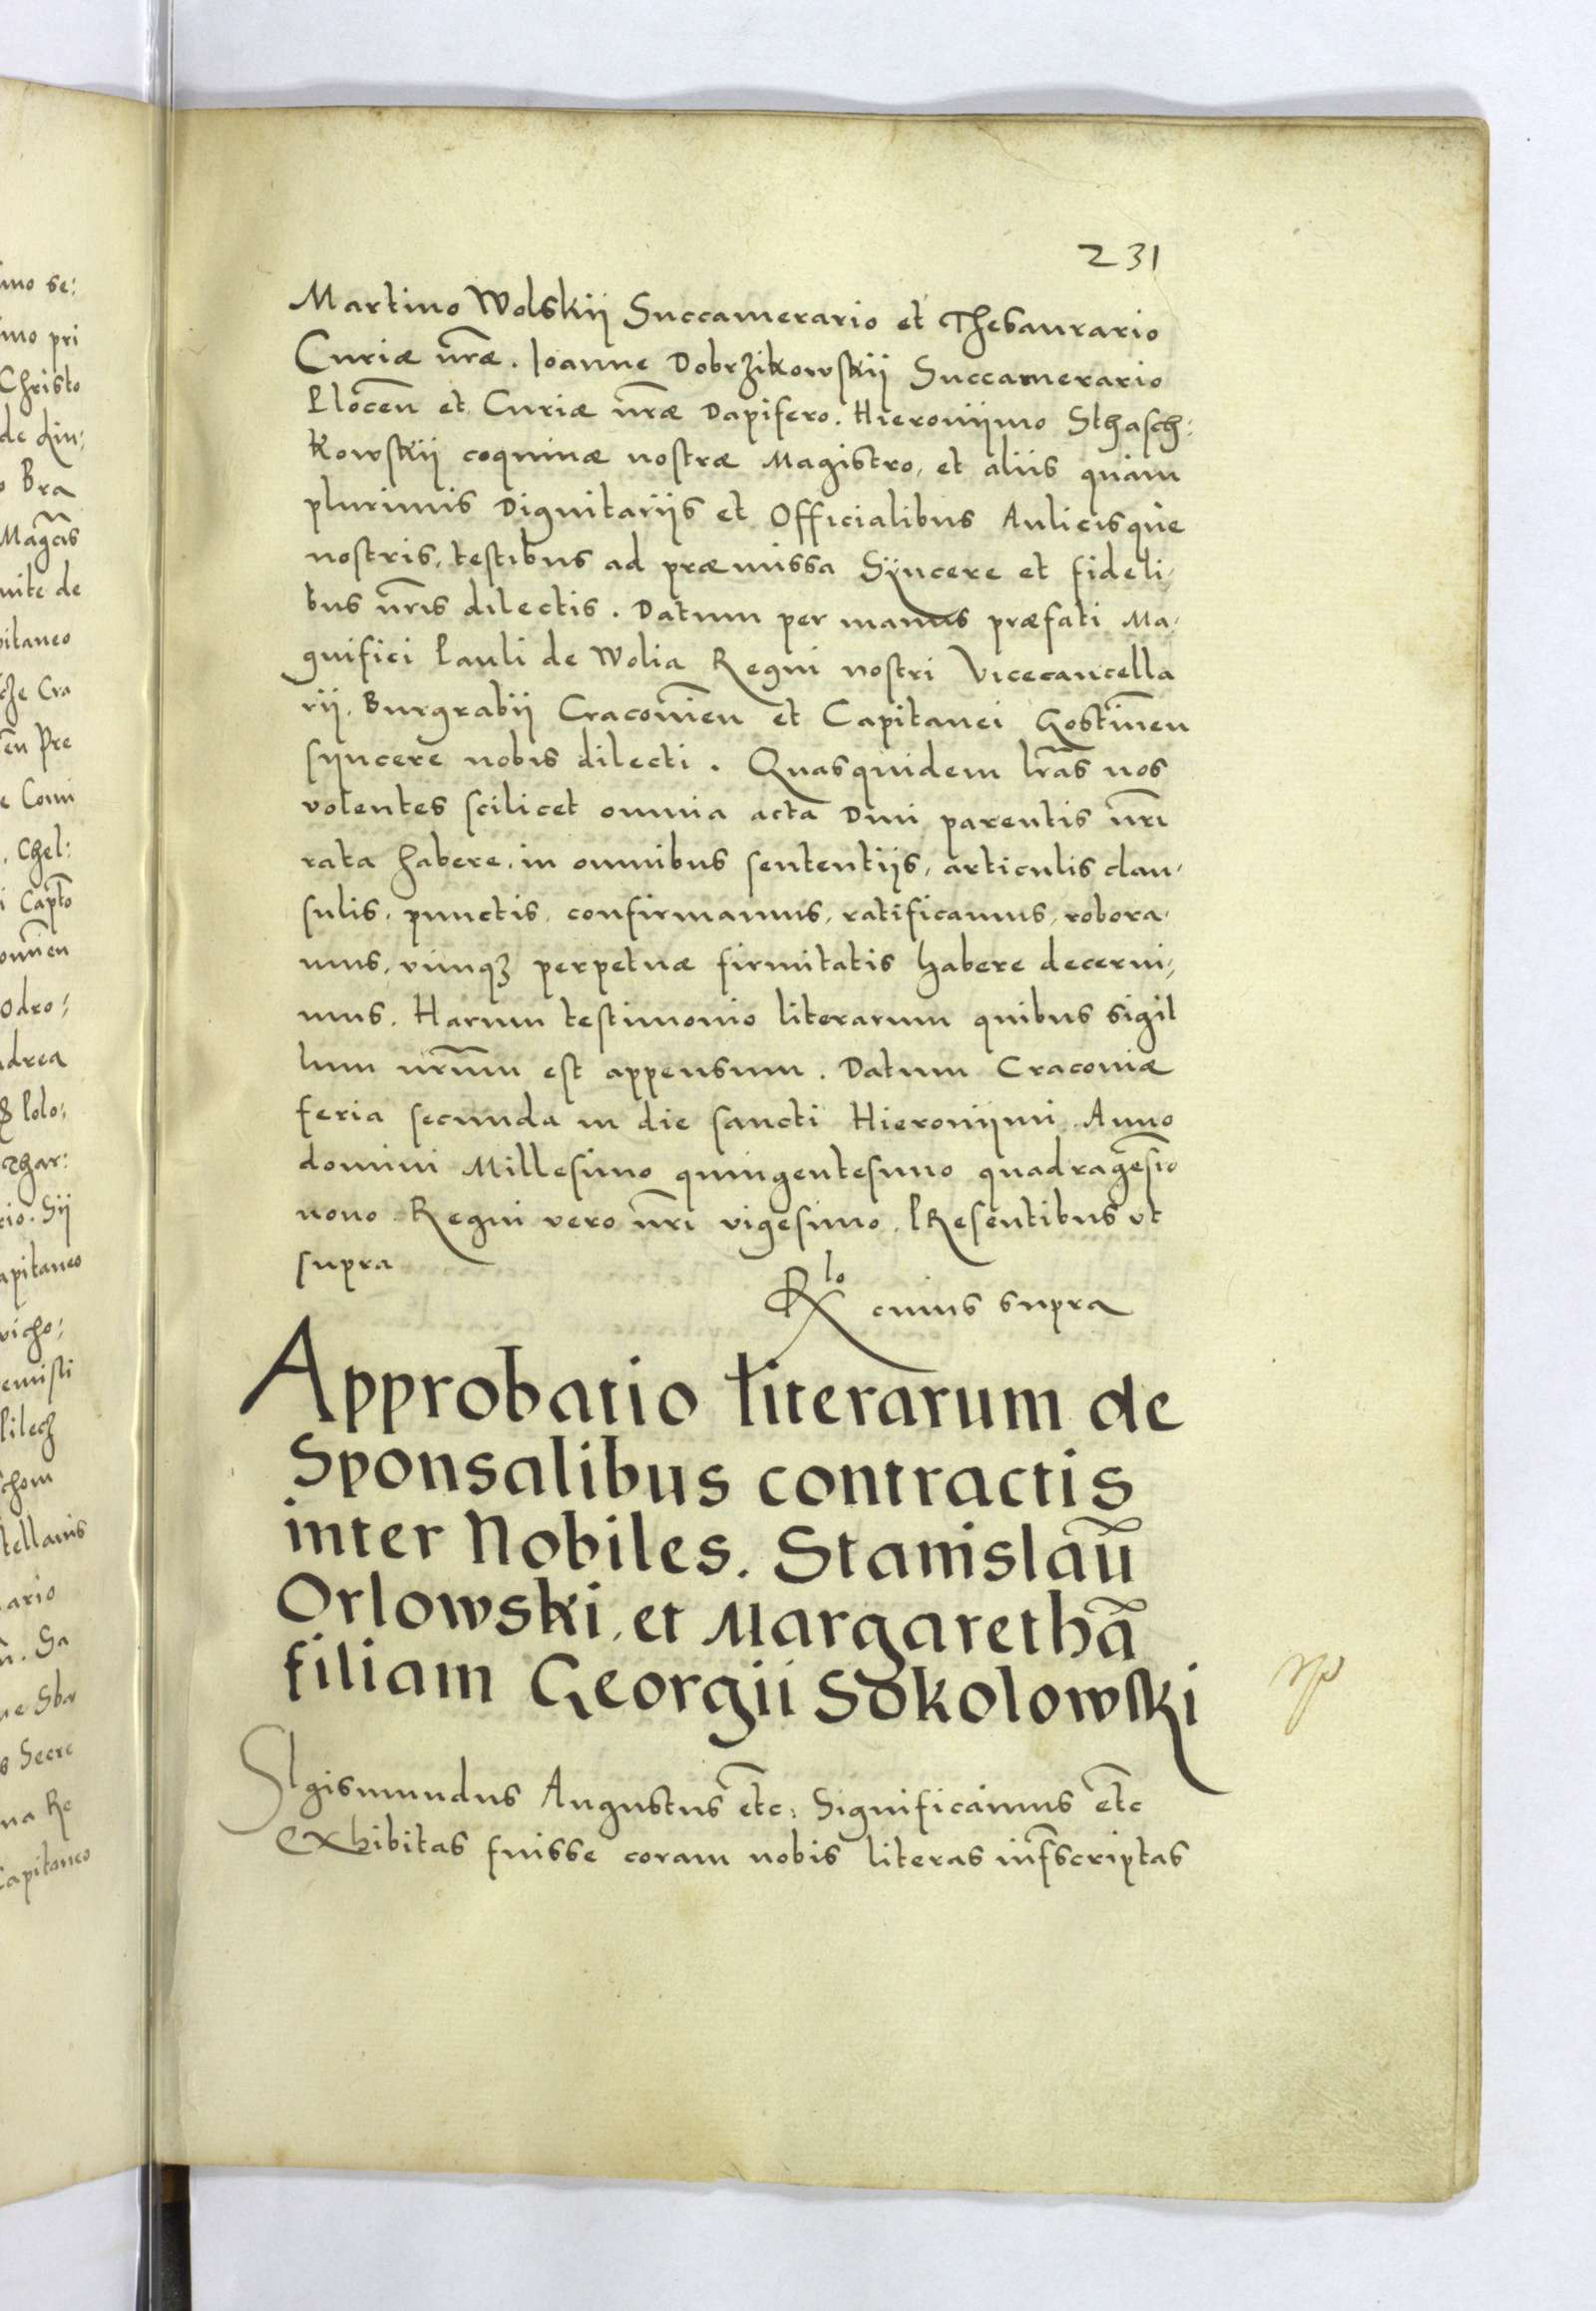 231
Martino Wolskij Succamerario et Thesaurario
Curiæ nr̃æ. Ioanne Dobrzikowskij Succamerario
Plocen̄ et Curiæ nr̃æ Dapifero. Hieronijmo Sthasch:
kowskij coquinæ nostræ Magistro, et aliis quàm
plurimis Dignitarijs et Officialibus Aulicisque
nostris, testibus ad præmissa Sÿncere et fideli,
bus nr̃is dilectis. Datum per manus præfati Ma,
gnifici Pauli de Wolia Regni nostri Vicecancella
rij, Burgrabij Cracovien̄ et Capitanei Gostinen̄
sijncere nobis dilecti. Quasquidem lr̃as nos
volentes scilicet omnia acta Dini parentis nr̃i
rata habere, in omnibus sententijs, articulis clau,
sulis, punctis, confirmamus, ratificamus, robora,
mus, vimqꝫ perpetuæ firmitatis habere decerni,
mus. Harum testimonio literarum quibus sigil
lum nr̃um est appensum. Datum Cracoviæ
feria secunda in die sancti Hieronijmi Anno
domini Millesimo quingentesimo quadragesīo
nono. Regni vero nr̃i vigesimo. PResentibus ut
supra
Rlo cuius supra
Approbatio literarum de
Sponsalibus contractis
inter Nobiles. Stanislaū
Orlowski, et Margarethā
filiam Georgii Sokolowski
SIgismundus Augustus etc: Significamus etc
Exhibitas fuisse coram nobis literas inf̄scriptas
mo se:
imo pri
Christo
Bra
ite de
pitaneo
Chel:
Capto
odro:
drea
Polo:
apitaneo
vicho:
tellanis
ario
Secre
na Re
Capitaneo